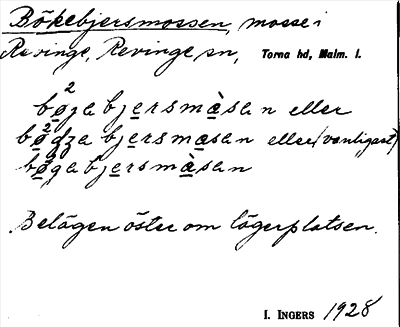 Bökebjersmossen, mosse i
Revinge, Revinge sn, Torna hd, Malm. l.
bø²ja bjersmàsan eller
bø²dza bjersmasan eller (vanligast)
bø²ga bjersmàsan
Belägen öster om lägerplatsen.
I. INGERS 1928